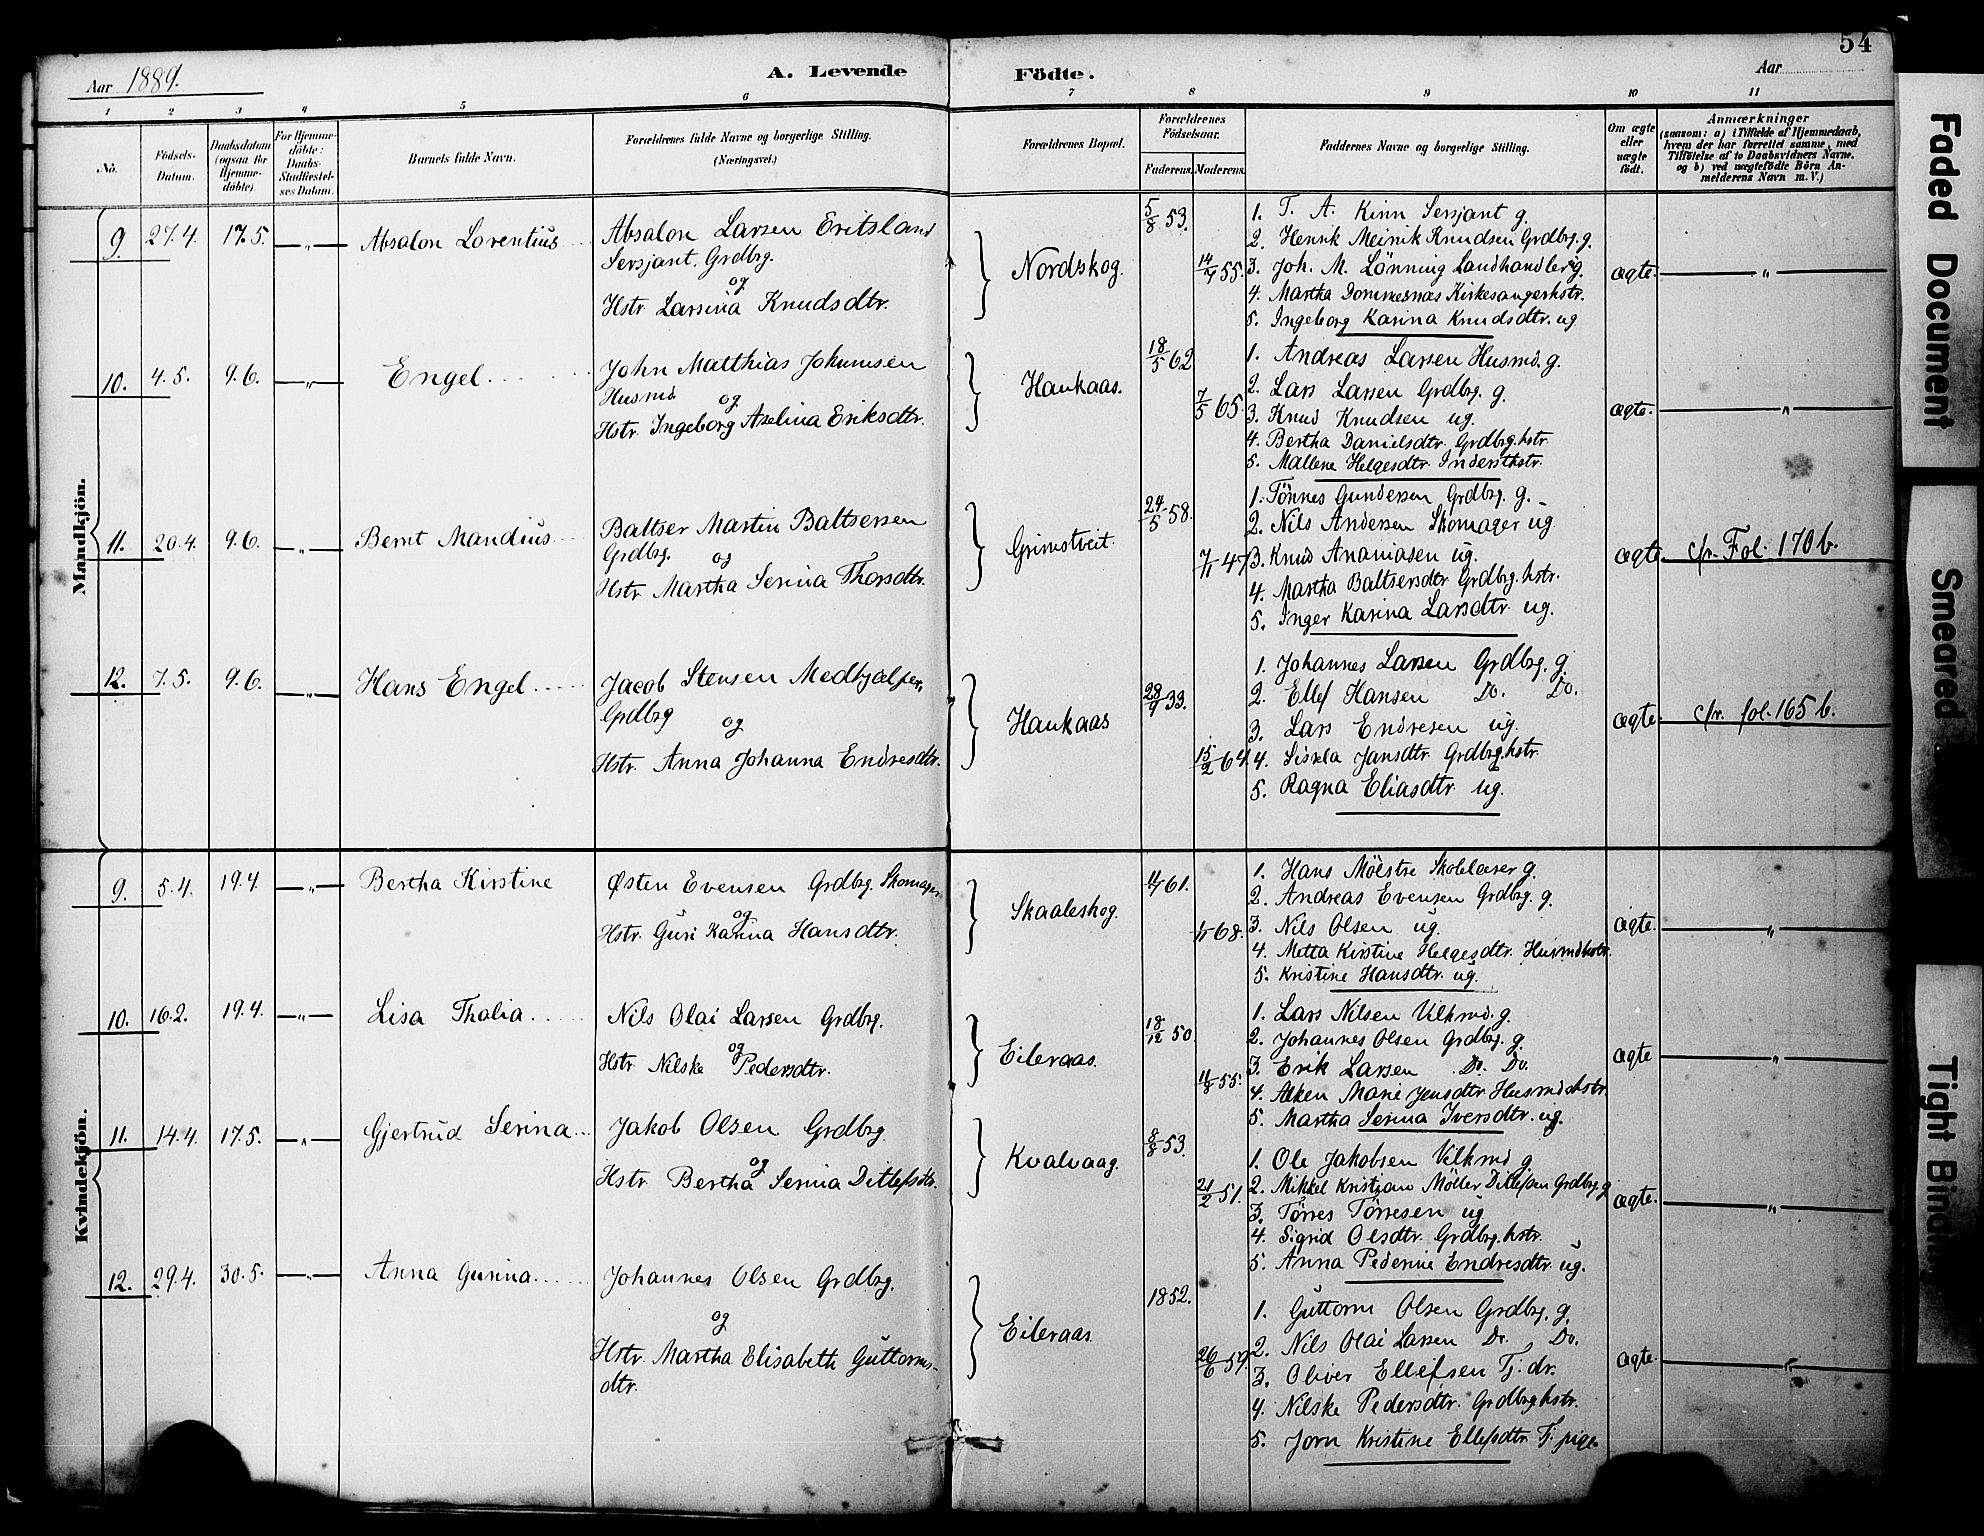 54
Aar 1889. A. Levende Födte. Aar
1 2 3 4 5 6 7 8 9 10 11
No.
Födsels-Datum.
Daabsdatum (ogsaa for Hjemme-döbte).
For Hjemme-döbte: Daabs-Stadfæstel-ses Datum.
Barnets fulde Navn.
Forældrenes fulde Navne og borgerlige Stilling.
(Næringsvei.)
Forældrenes Bopæl.
Forældrenes Födselsaar.
Faderens. Moderens.
Faddernes Navne og borgerlige Stilling.
Om ægte eller uægte födt.
Anmærkninger
(saasom: a) i Tilfælde af Hjemmedaab, hvem der har forrettet samme, med Tilföielse af to Daabsvidners Navne, og b) ved uægtefödte Börn Anmelderens Navn m. V.)
Mandkjön.
9. 27.4. 17.5. — " — Absalon Lorentius
Absalon Larsen Eritsland
Sersjant. Grdbrg.
og
Hstr. Larsina Knudsdtr.
Nordskog.
5/8 53.
55.
1. T. A. Kinn Sersjant g.
2. Henrik Meinik Knudsen Grdbrg. g.
3. Joh. M. Lönning Landhandler g.
4. Martha Dommesnæs Kirkesangerhstr.
5. Ingeborg Karina Knudsdtr. ug
ægte. "
10. 4.5. 9.6. — " — Engel
John Matthias Johnnesen
Husmd.
og
Hstr. Ingeborg Axelina Eriksdtr.
Haukaas.
18/5 62
7/5 65.
1. Andreas Larsen Husmd. g.
2. Lars Larsen Grdbrg. g.
3. Knud Knudsen ug.
4. Bertha Danielsdtr. Grdbrg.hstr.
5. Mallene Helgesdtr. Indersthstr.
ægte. "
11. 20.4. 9.6. — " — Bernt Mandius
Baltser Martin Baltsersen
Grdbrg.
og
Hstr. Martha Serina Thorsdtr.
Grimstveit.
24/5 58.
7/11 47
1. Tönnes Gundersen Grdbrg. g.
2. Nils Andersen Skomager ug
3. Knud Ananiasen ug.
4. Martha Baltsersdtr. Grdbrg. hstr.
5. Inger Karina Larsdtr. ug.
ægte cfr. Fol. 170 b.
12. 7.5. 9.6. — " — Hans Engel
Jacob Stensen Medhjælper,
Grdbrg
og
Hstr. Anna Johanna Endresdtr.
Haukaas
28/9 33.
15/2 64
1. Johannes Larsen Grdbrg. g
2. Ellef Hansen Do. Do.
3. Lars Endresen ug.
4. Sissela Jansdtr. Grdbrg.hstr.
5. Ragna Eliasdtr. ug.
ægte. cfr. fol. 165 b.
Kvindekjön.
9. 5.4. 19.4 — " — Bertha Kirstine
Østen Evensen Grdbrg. Skomager
og
Hstr. Guri Karina Hansdtr.
Skaaleskog.
61.
68.
1. Hans Möestre Skolelærer g.
2. Andreas Evensen Grdbrg. g.
3. Nils Olsen ug.
4. Metta Kirstine Helgesdtr. Husmdhstr.
5. Kristine Hansdtr. ug.
ægte. "
10. 16.2. 19.4. — " — Lisa Thalia
Nils Olai Larsen Grdbrg.
og
Hstr. Nilske Pedersdtr.
Eileraas.
18/12 50
11/8 55.
1. Lars Nilsen Vilkmd. g.
2. Johannes Olsen Grdbrg. g.
3. Erik Larsen Do. Do.
4. Alken Marie Jensdtr. Husmdhstr.
5. Martha Serina Iversdtr. ug.
ægte "
11. 14.4. 17.5. — " — Gjertrud Serina
Jakob Olsen Grdbrg.
og
Hstr. Bertha Serina Ditlefsdtr.
Kvalvaag.
8/8 53.
21/2 51.
1. Ole Jakobsen Vilkmd g.
2. Mikkel Kristian Möller Ditlefsen Grdbrg. g
3. Törres Törresen ug
4. Sigrid Olsdtr. Grdbrg.hstr.
5. Anna Pederine Endresdtr. ug.
ægte. "
12. 29.4. 30.5. — " — Anna Gurina
Johannes Olsen Grdbrg.
og
Hstr. Martha Elisabeth Guttorms-
dtr.
Eileraas.
1852.
26/6 59.
1. Guttorm Olsen Grdbrg. g.
2. Nils Olai Larsen Do. Do.
3. Oliver Ellefsen Tj. dr.
4. Nilske Pedersdtr. Grdbrghstr.
5. Jorn Kristine Ellefsdtr. Tj. pige
ægte. "
Faded Document
Smeared
Tight Bindin